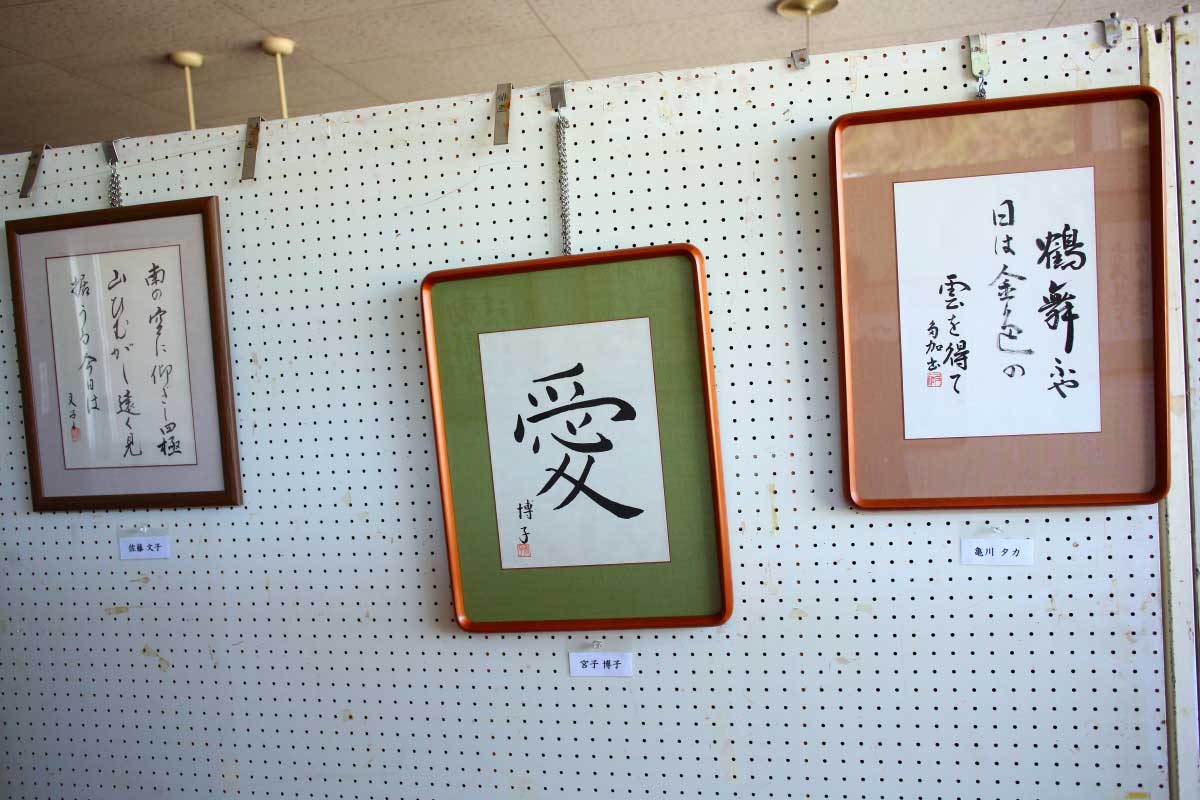 鶴舞ふや
日は金色の
雲を得て
多加書
亀川 タカ
愛
博子
宮子 博子
南の空に仰ぎし四極
山ひむがし遠く見
据うる今日は
文子
佐藤 文子